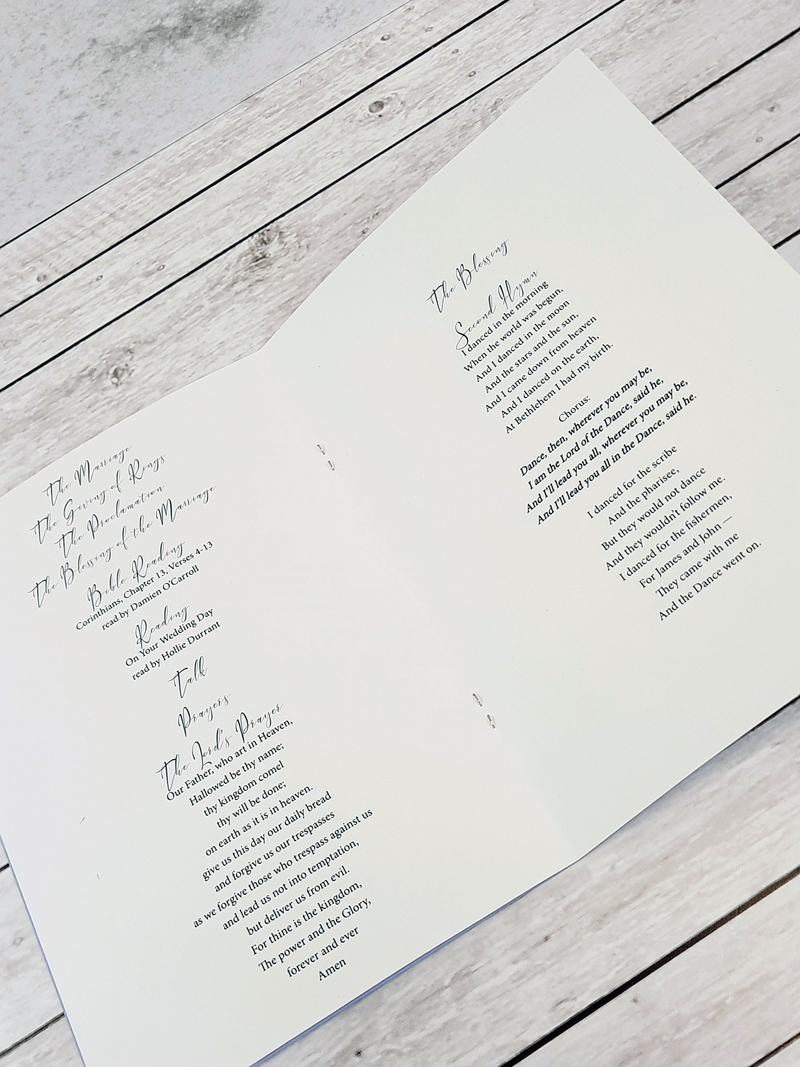 The Marriage
The Giving of Rings
The Proclamation
The Blessing of the Marriage
Bible Reading
Corinthians, Chapter 13, Verses 4-13
read by Damien O'Carroll
Reading
On Your Wedding Day
read by Hollie Durrant
Talk
Prayers
The Lord's Prayer
Our Father, who art in Heaven,
Hallowed be thy name;
thy kingdom come!
thy will be done;
on earth as it is in heaven.
give us this day our daily bread
and forgive us our trespasses
as we forgive those who trespass against us
and lead us not into temptation,
but deliver us from evil.
For thine is the kingdom,
The power and the Glory,
forever and ever
Amen
The Blessing
Second Hymn
I danced in the morning
When the world was begun,
And I danced in the moon
And the stars and the sun,
And I came down from heaven
And I danced on the earth,
At Bethlehem I had my birth.
Chorus:
Dance, then, wherever you may be,
I am the Lord of the Dance, said he,
And I'll lead you all, wherever you may be,
And I'll lead you all in the Dance, said he.
I danced for the scribe
And the pharisee,
But they would not dance
And they wouldn't follow me.
I danced for the fishermen,
For James and John —
They came with me
And the Dance went on.